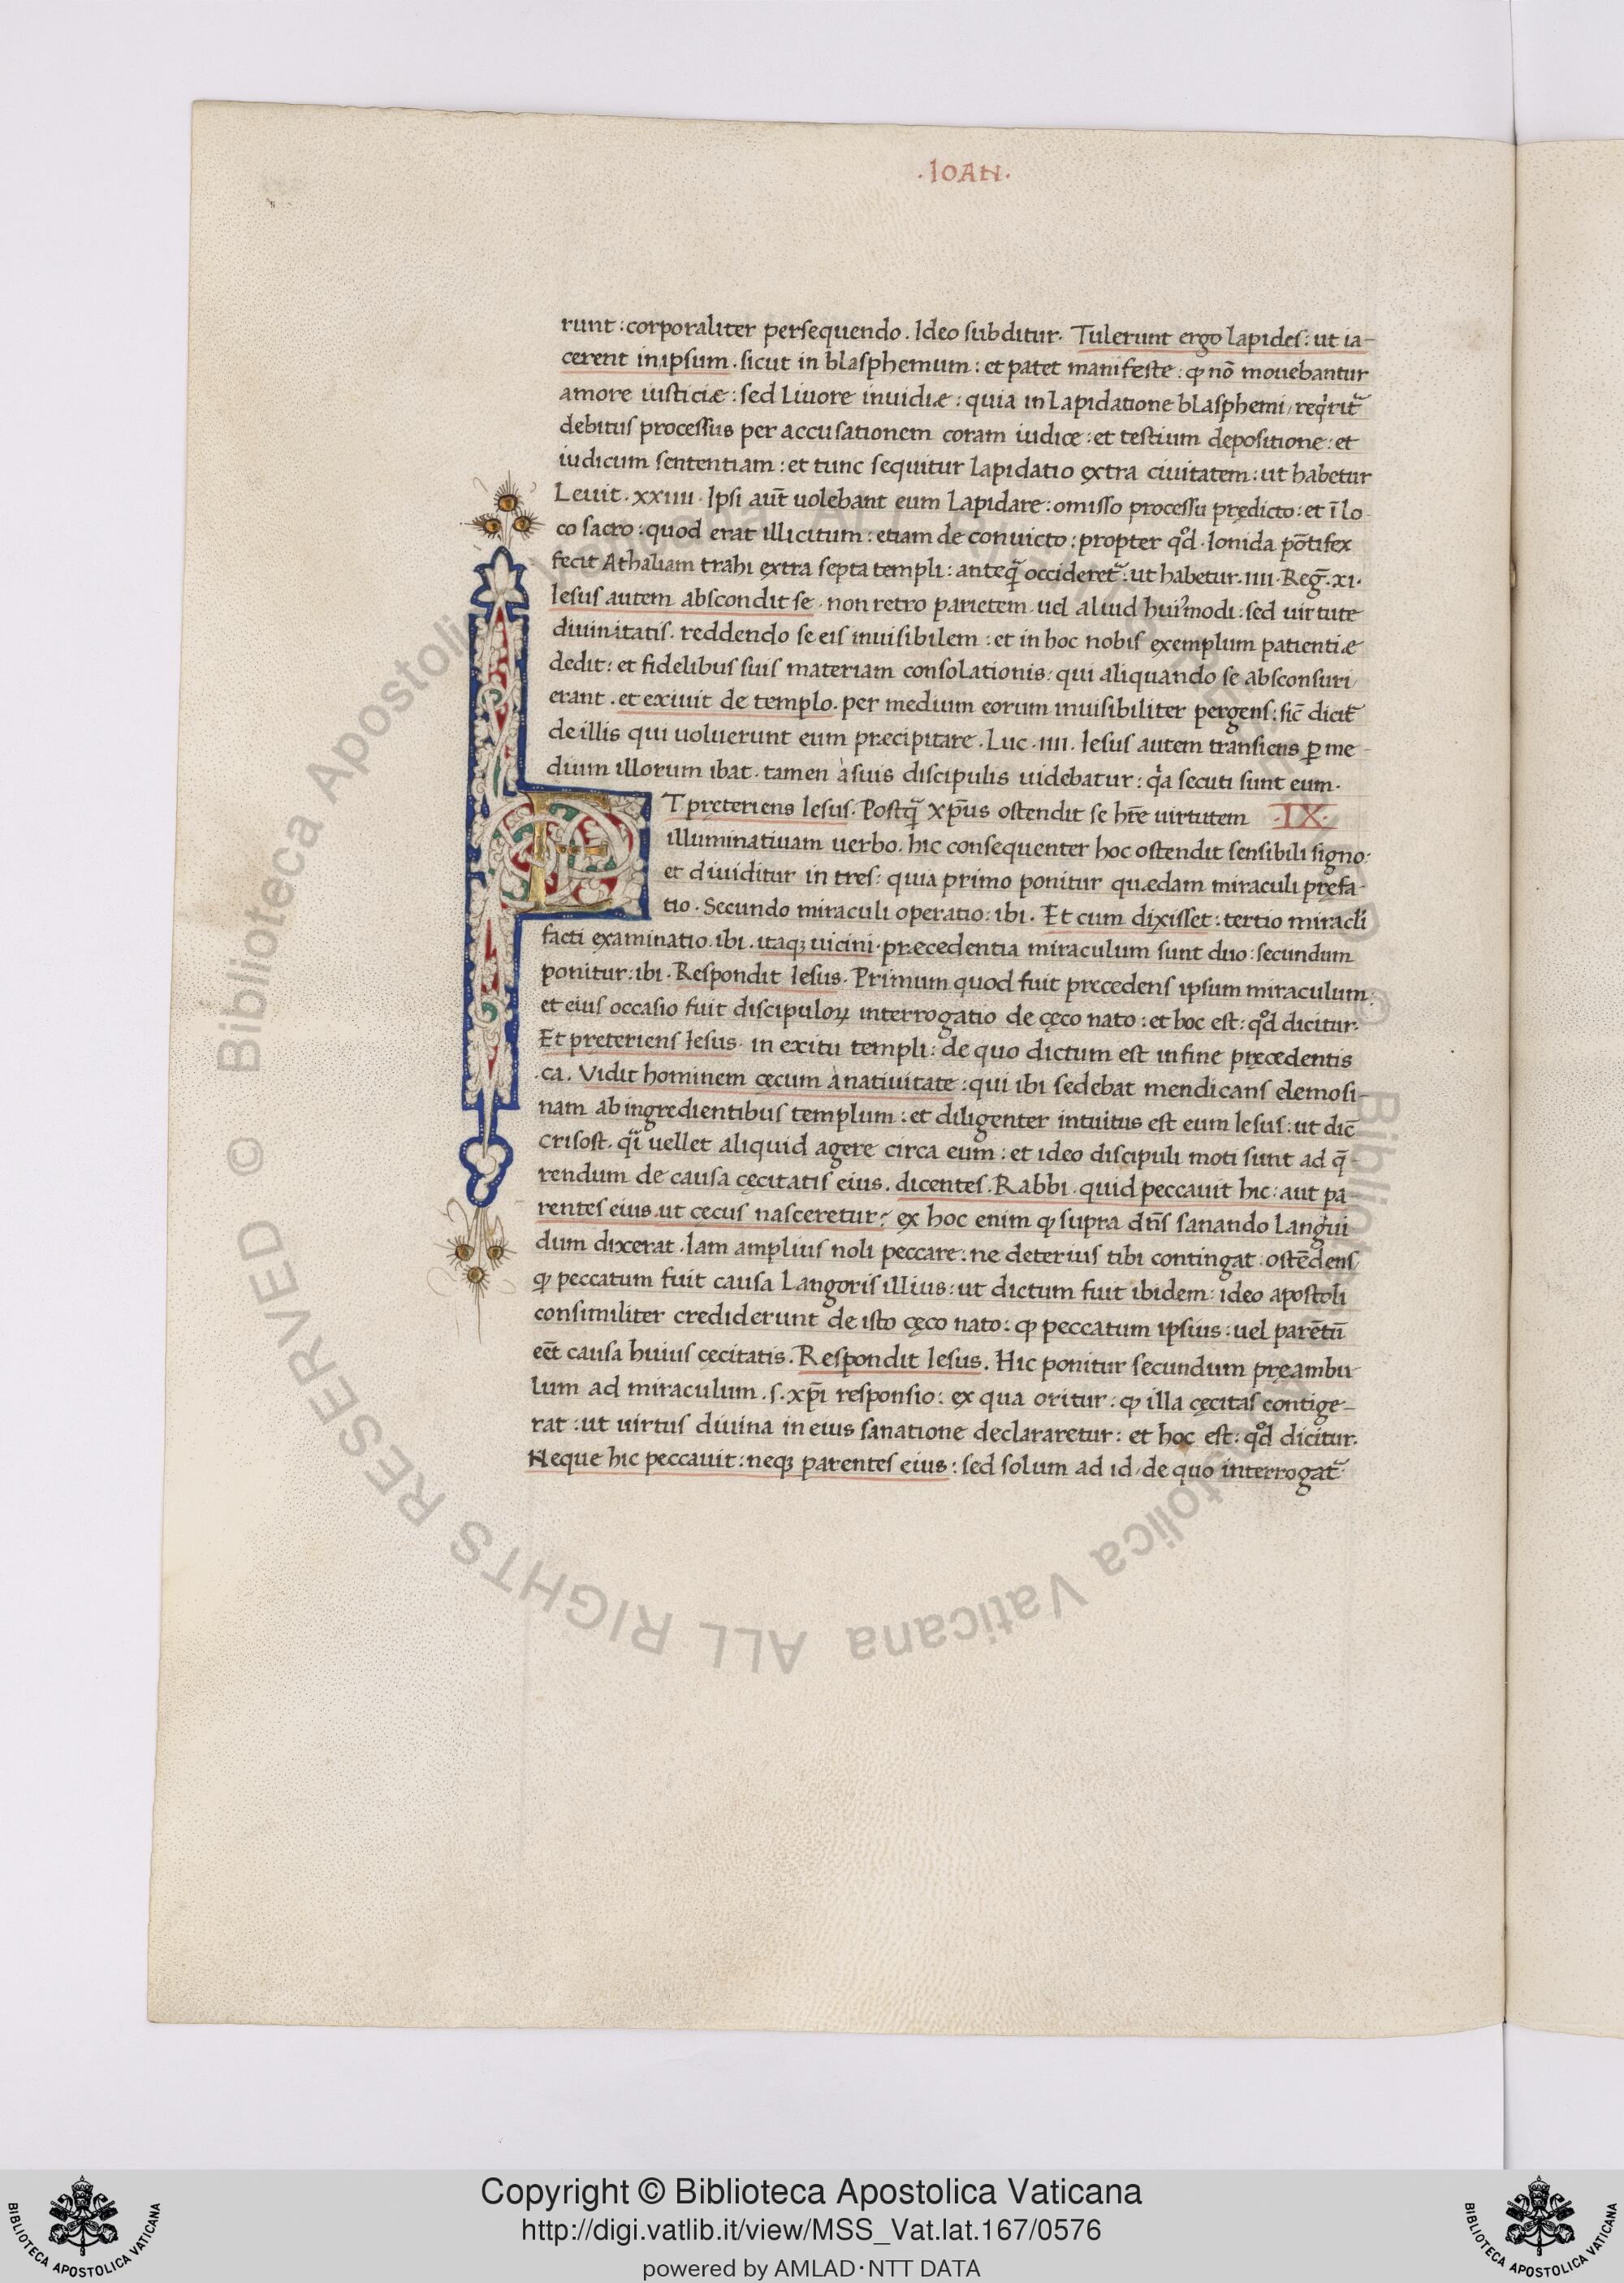 .IOAN.
runt: corporaliter persequendo. Ideo subditur. Tulerunt ergo lapides: ut ia-
cerent in ipsum. sicut in blasphemum: et patet manifeste: ꝙ nō mouebantur
amore iusticiæ: sed Liuore inuidiæ: quia in Lapidatione blasphemi, reqͥritᷓ
debitus processus per accusationem coram iudice: et testium depositione: et
iudicum sententiam: et tunc sequitur lapidatio extra ciuitatem: ut habetur
Leuit. xxiiii. Ipsi aut̄ uolebant eum Lapidare: omisso processu prędicto: et ī lo-
co sacro: quod erat illicitum: etiam de conuicto: propter qͦd. Ionida pōtifex
fecit Athaliam trahi extra septa templi: anteqᷓ occideretᷓ. ut habetur. iiii. Reg̅. xi.
Iesus autem abscondit se. non retro parietem. uel aliud huiꝰmodi: sed uirtute
diuinitatis. reddendo se eis inuisibilem: et in hoc nobis exemplum patientiæ
dedit: et fidelibus suis materiam consolationis: qui aliquando se absconsuri
erant. et exiuit de templo. per medium eorum inuisibiliter pergens: sic̄ dicit̄
de illis qui uoluerunt eum præcipitare. Luc. iiii. Iesus autem transiens ꝑ me-
dium illorum ibat. tamen à suis discipulis uidebatur: qͥa secuti sunt eum.
ET pręteriens Iesus. Postqᷓ xp̄us ostendit se hr̄e uirtutem .IX.
illuminatiuam uerbo. hic consequenter hoc ostendit sensibili signo:
et diuiditur in tres: quia primo ponitur quædam miraculi pręfa-
tio. Secundo miraculi operatio: ibi. Et cum dixisset: tertio miracl̄i
facti examinatio. ibi. itaqꝫ uicini. præcedentia miraculum sunt duo: secundum
ponitur: ibi. Respondit Iesus. Primum quod fuit pręcedens ipsum miraculum:
et eius occasio fuit discipuloꝝ interrogatio de cęco nato: et hoc est: qͦd dicitur.
Et preteriens Iesus. in exitu templi: de quo dictum est in fine pręcedentis
.ca. Vidit hominem cęcum à natiuitate: qui ibi sedebat mendicans elemosi-
nam ab ingredientibus templum: et diligenter intuitus est eum Iesus: ut dic̄
crisost. qͣi uellet aliquid agere circa eum: et ideo discipuli moti sunt ad q̄-
rendum de causa cęcitatis eius. dicentes. Rabbi. quid peccauit hic: aut pa-
rentes eius. ut cęcus nasceretur? ex hoc enim ꝙ supra dn̄s sanando Langui
dum dixerat. Iam amplius noli peccare: ne deterius tibi contingat: ostēdens
ꝙ peccatum fuit causa Langoris illius: ut dictum fuit ibidem: ideo apostoli
consimiliter crediderunt de isto cęco nato: ꝙ peccatum ipsius: uel parētū
eēt causa huius cecitatis. Respondit Iesus. Hic ponitur secundum pręambu-
lum ad miraculum. s. xp̄i responsio: ex qua oritur: ꝙ illa cęcitas contige-
rat: ut uirtus diuina in eius sanatione declararetur: et hoc est: qͦd dicitur.
Neque hic peccauit: neqꝫ parentes eius: sed solum ad id, de quo interrogatᷓ.
© Biblioteca Apostolica Vaticana ALL RIGHTS RESERVED
Copyright © Biblioteca Apostolica Vaticana
http://digi.vatlib.it/view/MSS_Vat.lat.167/0576
powered by AMLAD·NTT DATA
BIBLIOTECA APOSTOLICA VATICANA
BIBLIOTECA APOSTOLICA VATICANA